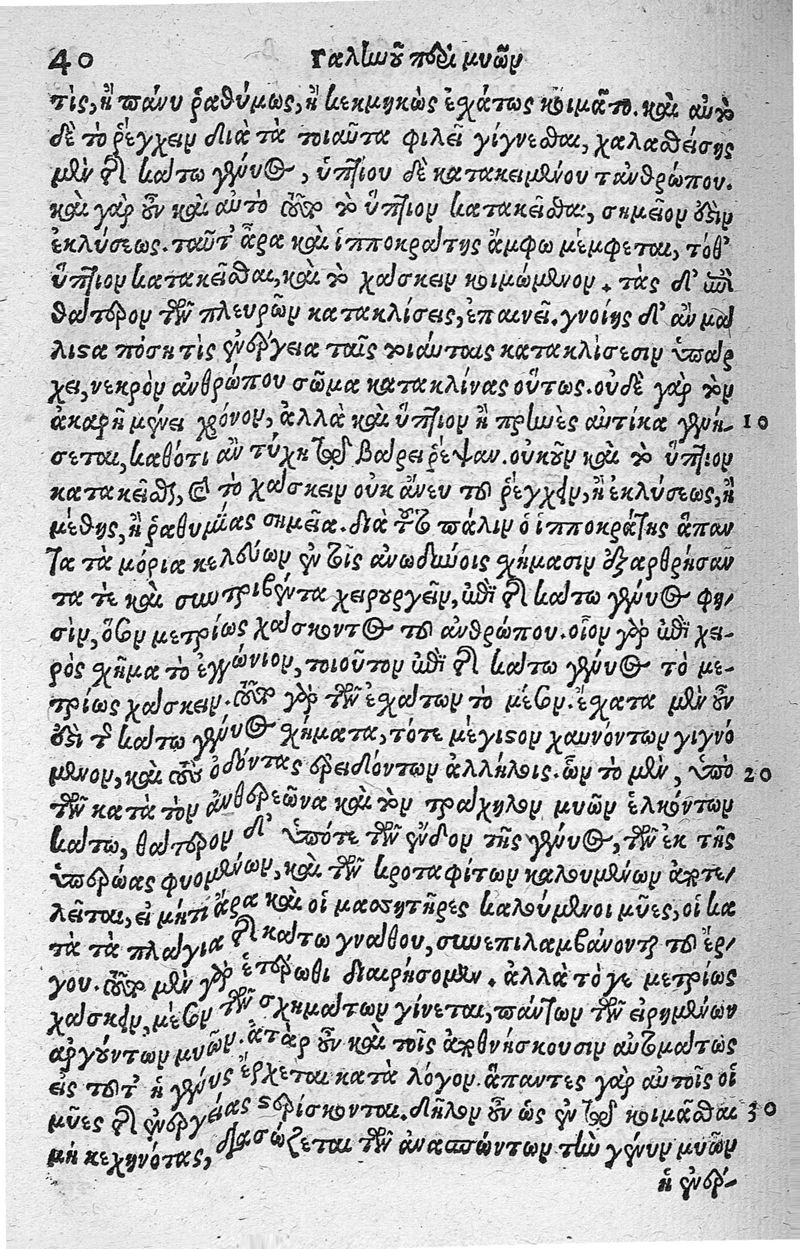 40 Γαλίωοῦ περὶ μυῶν
τὶς, ἢ πάνυ ῥαθύμως, ἢ κεκμηκὼς ἐχάτως κοιμᾶτο. καὶ αὐτὸ
δὲ τὸ ῥέγχειν διὰ τὰ τοιαῦτα φιλεῖ γίγνεσθαι, χαλασθείσης
μὲν τῆς κάτω γένυος, ὑπτίου δὲ κατακειμένου τἀνθρώπου.
καὶ γὰρ οὖν καὶ αὐτὸ τοῦτο τὸ ὕπτιον κατακεῖσθαι, σημεῖον ὅβὶν
ἐκλύσεως. ταῦτ' ἄρα καὶ ἱπποκράτης ἄμφω μέμφεται, τόθ'
ὕπτιον κατακεῖσθαι, καὶ τὸ χάσκειν κοιμώμενον. τὰς δ' ἐπὶ
θάτερον τῶν πλευρῶν κατακλίσεις, ἐπαινεῖ. γνοίης δ' ἂν μά
λιστα πόση τὶς ἐνέργεια ταῖς τοιαύταις κατακλίσεσιν ὑπάρ
χει, νεκρὸν ἀνθρώπου σῶμα κατακλίνας οὕτως. οὐδὲ γὰρ τὸν
ἀκαρῆ μένει χρόνον, ἀλλὰ καὶ ὕπτιον ἢ πρηνὲς αὐτίκα γενή- 10
σεται, καθότι ἂν τύχῃ τῷ βάρει ῥέψαν. οὐκοῦν καὶ τὸ ὕπτιον
κατακεῖσθαι, καὶ τὸ χάσκειν οὐκ ἄνευ τοῦ ῥέγχειν, ἢ ἐκλύσεως, ἢ
μέθης, ἢ ῥαθυμίας σημεῖα. διὰ τοῦτο πάλιν ὁ ἱπποκράτης ἅπαν
τα τὰ μόρια κελεύων ἐν τοῖς ἀνωδύνοις χήμασιν ἐξαρθρήσαν
τα τὲ καὶ συντριβέντα χειρουργεῖν, ἐπὶ τῆς κάτω γένυος φη-
σὶν, ὅλον μετρίως χάσκοντος τοῦ ἀνθρώπου. οἷον γὰρ ἐπὶ χει-
ρὸς χῆμα τὸ ἐγγώνιον, τοιοῦτον ἐπὶ τῆς κάτω γένυος τὸ με-
τρίως χάσκειν. τοῦτο γὰρ τῶν ἐχάτων τὸ μέσον. ἔχατα μὲν οὖν
ἐστὶ τῆς κάτω γένυος χήματα, τότε μέγιστον χαινόντων γιγνό
μενον, καὶ τοὺς ὀδόντας ἐρειδόντων ἀλλήλοις. ὧν τὸ μὲν, ὑπὸ 20
τῶν κατὰ τὸν ἀνθερεῶνα καὶ τὸν τράχηλον μυῶν ἑλκόντων
κάτω, θάτερον δ' ὑπότε τῶν ἔνδον τῆς γένυος, τῶν ἐκ τῆς
ὑπερώας φυομένων, καὶ τῶν κροταφίτων καλουμένων ἀποτε-
λεῖται, εἰ μήτι ἄρα καὶ οἱ μασσητῆρες καλούμενοι μῦες, οἱ κα
τὰ τὰ πλάγια τῆς κάτω γνάθου, συνεπιλαμβάνονται τοῦ ἔρ-
γου. τοῦτο μὲν γὰρ ἑτέρωθι διαιρήσομεν. ἀλλὰ τό γε μετρίως
χάσκειν, μέσον τῶν σχημάτων γίνεται, πάντων τῶν εἰρημένων
ἀργούντων μυῶν. ἀτὰρ οὖν καὶ τοῖς ἀποθνήσκουσιν αὐτομάτως
εἰς τοῦτ' ἡ γένυς ἔρχεται κατὰ λόγον. ἅπαντες γὰρ αὐτοῖς οἱ
μῦες τῆς ἐνεργείας στερίσκονται. δῆλον οὖν ὡς ἐν τῷ κοιμᾶσθαι 30
μὴ κεχηνότας, διασώζεται τῶν ἀνασπώντων τὴν γένυν μυῶν
ἡ ἐνέρ-